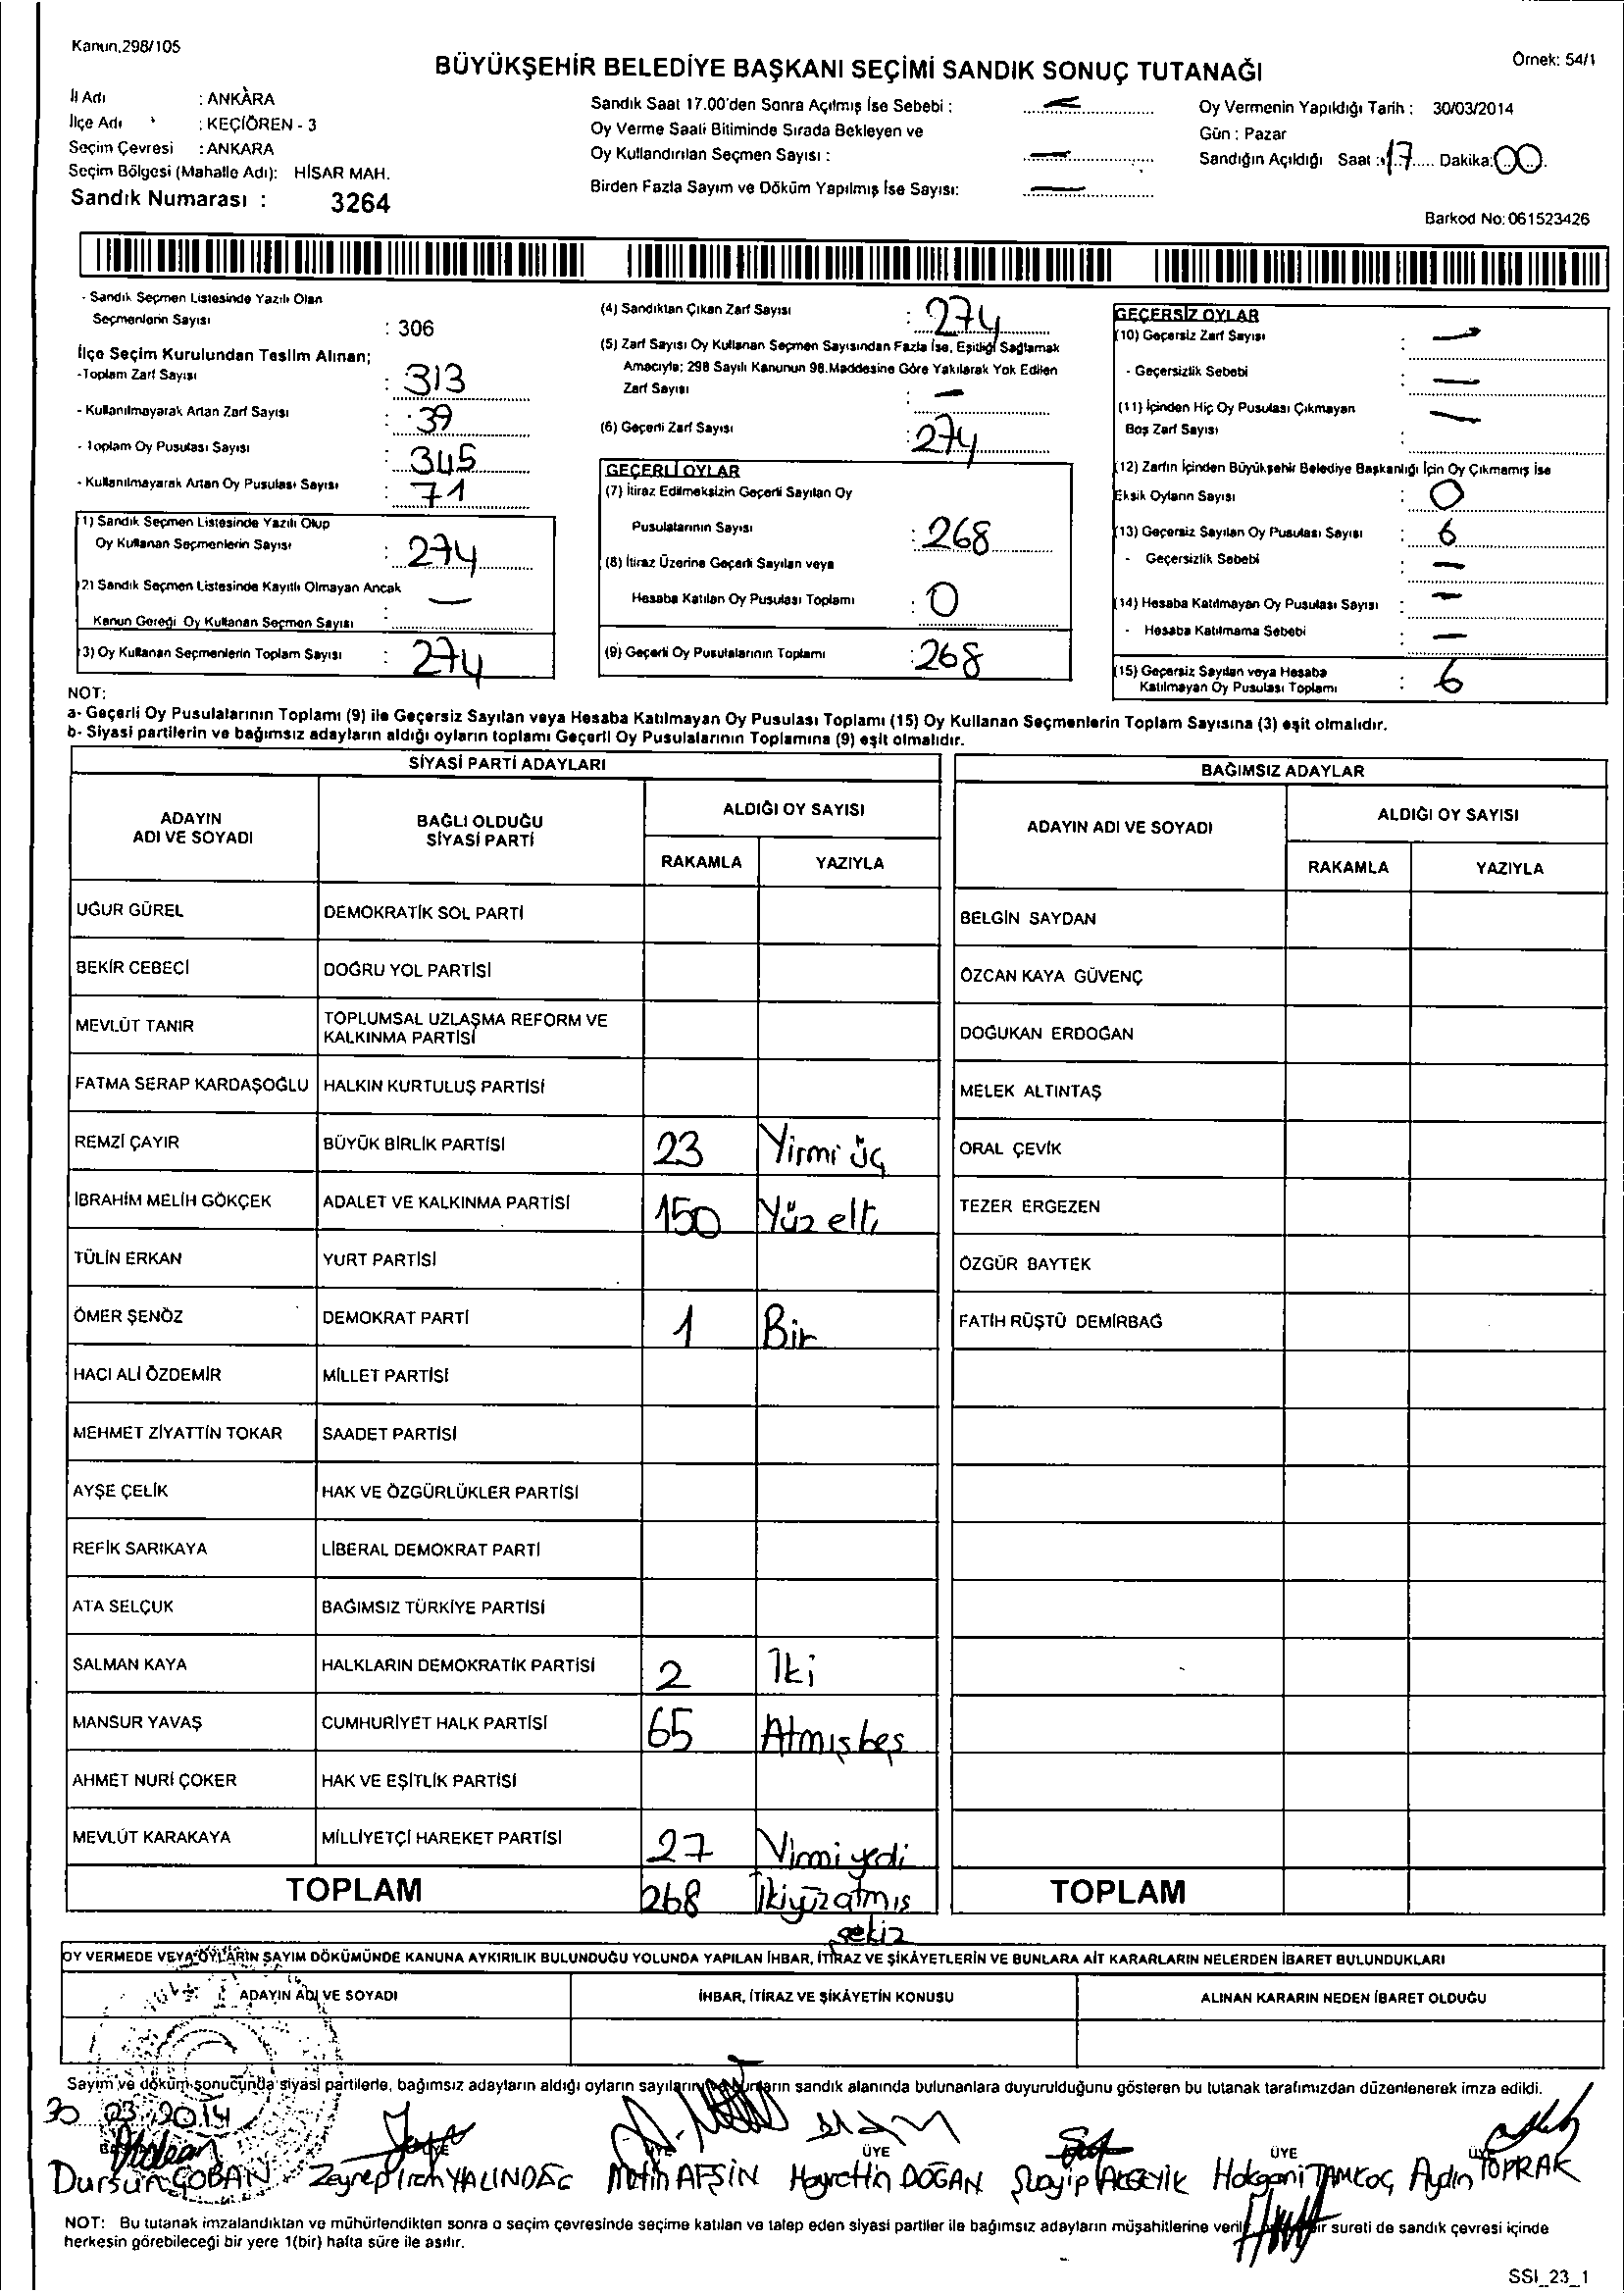 Kanun.298/105
Örnek: 54/1
BÜYÜKŞEHİR BELEDİYE BAŞKANI SEÇİMİ SANDIK SONUÇ TUTANAĞI
İl Adı : ANKARA
İlçe Adı : KEÇİÖREN - 3
Seçim Çevresi : ANKARA
Seçim Bölgesi (Mahalle Adı): HİSAR MAH.
Sandık Numarası : 3264
Sandık Saat 17.00'den Sonra Açılmış İse Sebebi : —
Oy Verme Saati Bitiminde Sırada Bekleyen ve
Oy Kullandırılan Seçmen Sayısı : —
Birden Fazla Sayım ve Döküm Yapılmış İse Sayısı: —
Oy Vermenin Yapıldığı Tarih : 30/03/2014
Gün : Pazar
Sandığın Açıldığı Saat : 17 Dakika: 00
Barkod No: 061523426
- Sandık Seçmen Listesinde Yazılı Olan
Seçmenlerin Sayısı : 306
İlçe Seçim Kurulundan Teslim Alınan;
-Toplam Zarf Sayısı : 313
- Kullanılmayarak Artan Zarf Sayısı : 39
- Toplam Oy Pusulası Sayısı : 345
- Kullanılmayarak Artan Oy Pusulası Sayısı : 71
(1) Sandık Seçmen Listesinde Yazılı Olup
Oy Kullanan Seçmenlerin Sayısı : 274
(2) Sandık Seçmen Listesinde Kayıtlı Olmayan Ancak
Kanun Gereği Oy Kullanan Seçmen Sayısı : —
(3) Oy Kullanan Seçmenlerin Toplam Sayısı : 274
(4) Sandıktan Çıkan Zarf Sayısı : 274
(5) Zarf Sayısı Oy Kullanan Seçmen Sayısından Fazla İse, Eşitliği Sağlamak
Amacıyla; 298 Sayılı Kanunun 98.Maddesine Göre Yakılarak Yok Edilen
Zarf Sayısı : —
(6) Geçerli Zarf Sayısı : 274
GEÇERLİ OYLAR
(7) İtiraz Edilmeksizin Geçerli Sayılan Oy
Pusulalarının Sayısı : 268
(8) İtiraz Üzerine Geçerli Sayılan veya
Hesaba Katılan Oy Pusulası Toplamı : 0
(9) Geçerli Oy Pusulalarının Toplamı : 268
GEÇERSİZ OYLAR
(10) Geçersiz Zarf Sayısı : —
- Geçersizlik Sebebi : —
(11) İçinden Hiç Oy Pusulası Çıkmayan
Boş Zarf Sayısı : —
(12) Zarfın İçinden Büyükşehir Belediye Başkanlığı İçin Oy Çıkmamış ise
Eksik Oyların Sayısı : 0
(13) Geçersiz Sayılan Oy Pusulası Sayısı : 6
- Geçersizlik Sebebi : —
(14) Hesaba Katılmayan Oy Pusulası Sayısı : —
- Hesaba Katılmama Sebebi : —
(15) Geçersiz Sayılan veya Hesaba
Katılmayan Oy Pusulası Toplamı : 6
NOT:
a- Geçerli Oy Pusulalarının Toplamı (9) ile Geçersiz Sayılan veya Hesaba Katılmayan Oy Pusulası Toplamı (15) Oy Kullanan Seçmenlerin Toplam Sayısına (3) eşit olmalıdır.
b- Siyasi partilerin ve bağımsız adayların aldığı oyların toplamı Geçerli Oy Pusulalarının Toplamına (9) eşit olmalıdır.
SİYASİ PARTİ ADAYLARI
ADAYIN ADI VE SOYADI
BAĞLI OLDUĞU SİYASİ PARTİ
ALDIĞI OY SAYISI
RAKAMLA YAZIYLA
UĞUR GÜREL DEMOKRATİK SOL PARTİ
BEKİR CEBECİ DOĞRU YOL PARTİSİ
MEVLÜT TANIR TOPLUMSAL UZLAŞMA REFORM VE
KALKINMA PARTİSİ
FATMA SERAP KARDAŞOĞLU HALKIN KURTULUŞ PARTİSİ
REMZİ ÇAYIR BÜYÜK BİRLİK PARTİSİ 23 Yirmi üç
İBRAHİM MELİH GÖKÇEK ADALET VE KALKINMA PARTİSİ 150 Yüz elti
TÜLİN ERKAN YURT PARTİSİ
ÖMER ŞENÖZ DEMOKRAT PARTİ 1 Bir
HACI ALİ ÖZDEMİR MİLLET PARTİSİ
MEHMET ZİYATTİN TOKAR SAADET PARTİSİ
AYŞE ÇELİK HAK VE ÖZGÜRLÜKLER PARTİSİ
REFİK SARIKAYA LİBERAL DEMOKRAT PARTİ
ATA SELÇUK BAĞIMSIZ TÜRKİYE PARTİSİ
SALMAN KAYA HALKLARIN DEMOKRATİK PARTİSİ 2 İki
MANSUR YAVAŞ CUMHURİYET HALK PARTİSİ 65 Atmışbeş
AHMET NURİ ÇOKER HAK VE EŞİTLİK PARTİSİ
MEVLÜT KARAKAYA MİLLİYETÇİ HAREKET PARTİSİ 27 Yirmi yedi
TOPLAM 268 İkiyüz atmıs
sekiz
BAĞIMSIZ ADAYLAR
ADAYIN ADI VE SOYADI
ALDIĞI OY SAYISI
RAKAMLA YAZIYLA
BELGİN SAYDAN
ÖZCAN KAYA GÜVENÇ
DOĞUKAN ERDOĞAN
MELEK ALTINTAŞ
ORAL ÇEVİK
TEZER ERGEZEN
ÖZGÜR BAYTEK
FATİH RÜŞTÜ DEMİRBAĞ
TOPLAM
OY VERMEDE VEYA OYLARIN SAYIM DÖKÜMÜNDE KANUNA AYKIRILIK BULUNDUĞU YOLUNDA YAPILAN İHBAR, İTİRAZ VE ŞİKÂYETLERİN VE BUNLARA AİT KARARLARIN NELERDEN İBARET BULUNDUKLARI
ADAYIN ADI VE SOYADI
İHBAR, İTİRAZ VE ŞİKÂYETİN KONUSU
ALINAN KARARIN NEDEN İBARET OLDUĞU
Sayım ve döküm sonucunda siyasi partilerle, bağımsız adayların aldığı oyların sayıların sandık alanında bulunanlara duyurulduğunu gösteren bu tutanak tarafımızdan düzenlenerek imza edildi.
30 03 2014
ÜYE ÜYE ÜYE
Dursun ÇOBAN Zeynep İrem YALINDAĞ Metin AFŞİN Hayrettin DOĞAN Şuayip AKGEYİK Hakgani TAMKOÇ Aydın TOPRAK
NOT: Bu tutanak imzalandıktan ve mühürlendikten sonra o seçim çevresinde seçime katılan ve talep eden siyasi partiler ile bağımsız adayların müşahitlerine bir sureti de sandık çevresi içinde
herkesin görebileceği bir yere 1(bir) hafta süre ile asılır.
SSI_23_1